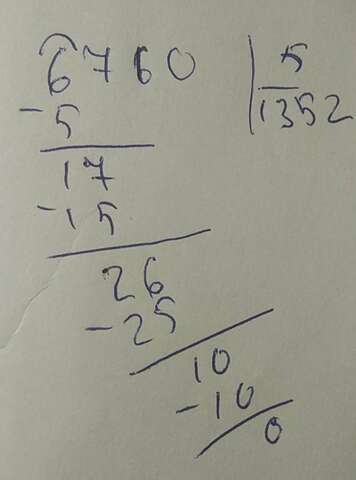 6760 5
-5 1352
17
-15
26
-25
10
-10
0